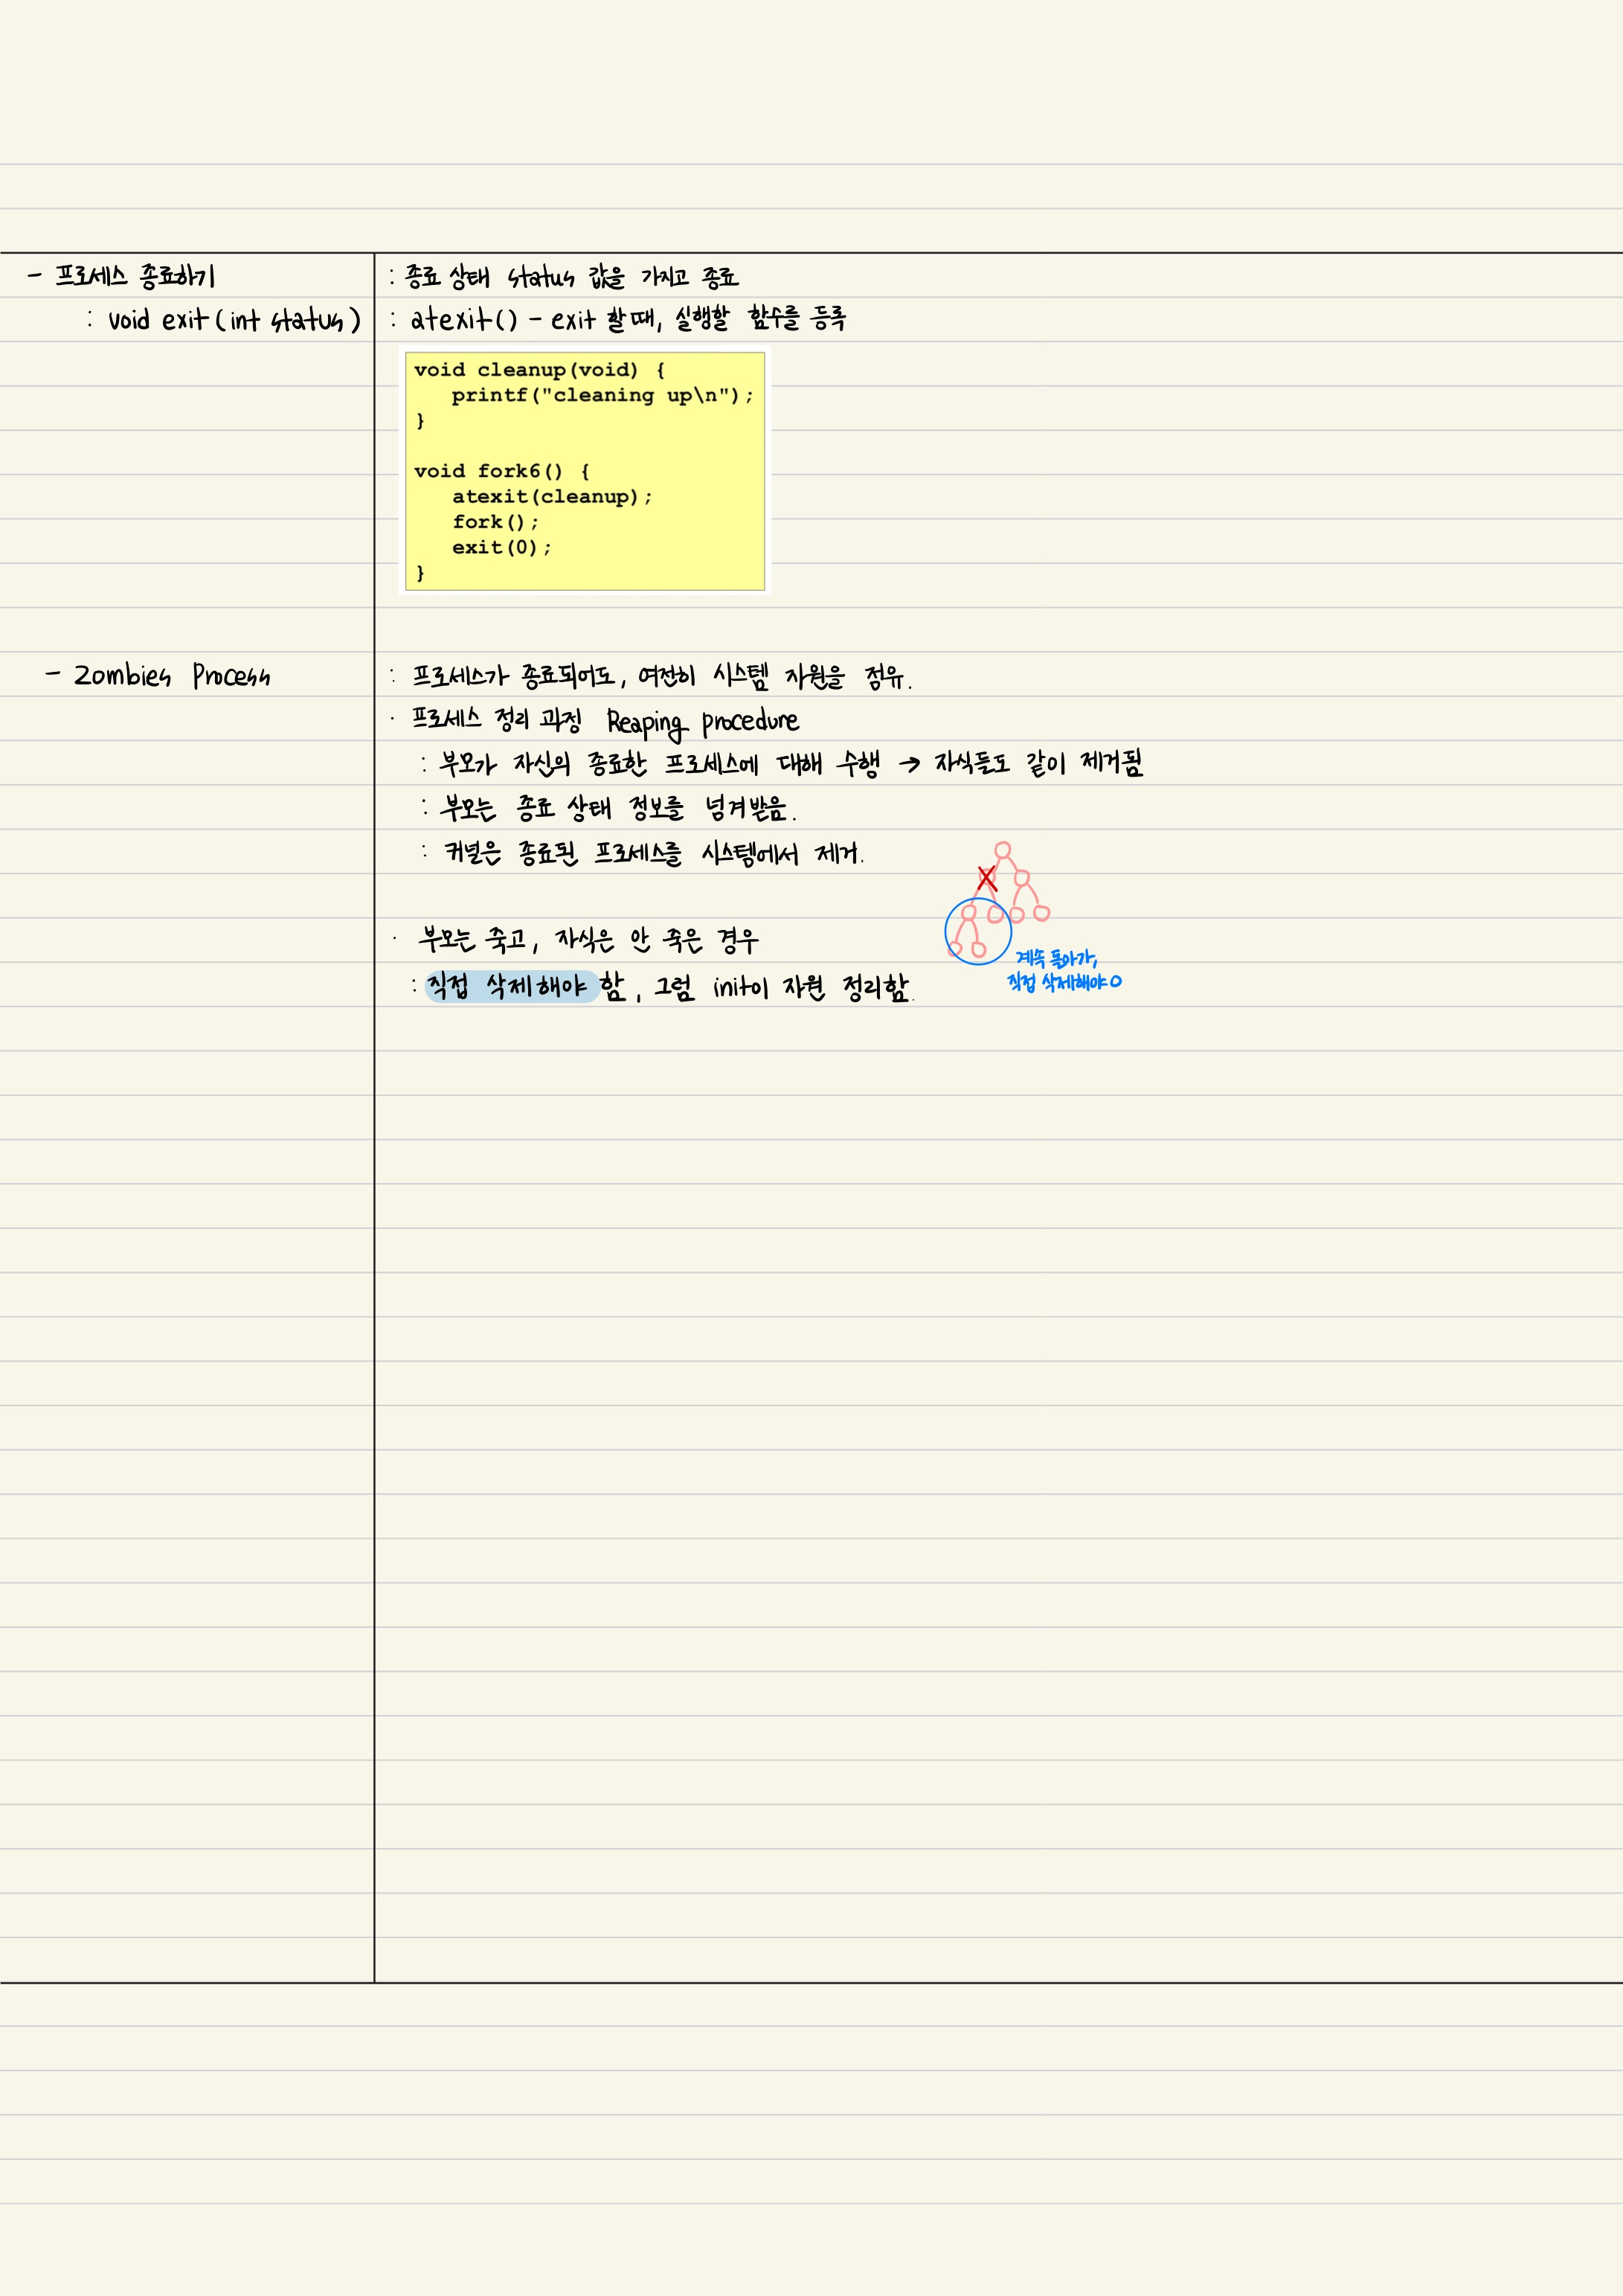 - 프로세스 종료하기
: void exit(int status)
: 종료 상태 status 값을 가지고 종료
: atexit() - exit 할 때, 실행할 함수를 등록
void cleanup(void) {
printf("cleaning up\n");
}
void fork6() {
atexit(cleanup);
fork();
exit(0);
}
- Zombies Process
: 프로세스가 종료되어도, 여전히 시스템 자원을 점유.
· 프로세스 정리 과정 Reaping procedure
: 부모가 자신의 종료한 프로세스에 대해 수행 → 자식들도 같이 제거됨
: 부모는 종료 상태 정보를 넘겨받음.
: 커널은 종료된 프로세스를 시스템에서 제거.
· 부모는 죽고, 자식은 안 죽은 경우
: 직접 삭제해야 함, 그럼 init이 자원 정리함.
계속 돌아가,
직접 삭제해야 O